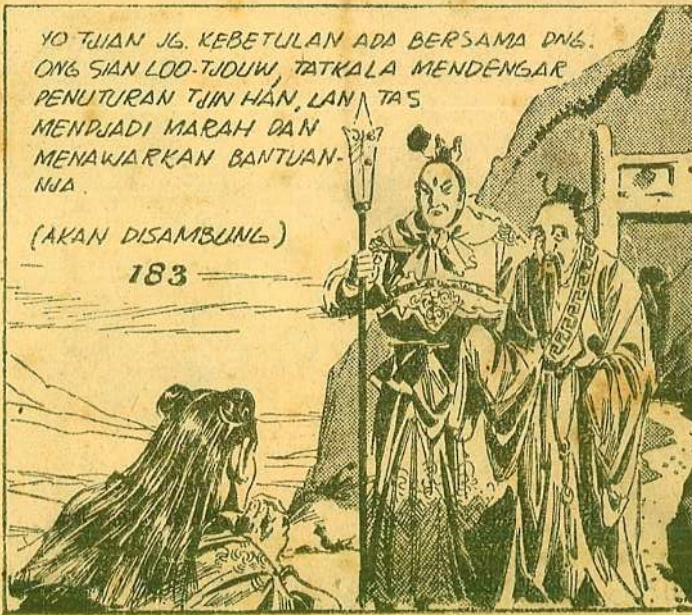 YO TJIAN JG. KEBETULAN ADA BERSAMA DNG.
ONG SIAN LOO-TJOUW, TATKALA MENDENGAR
PENUTURAN TJIN HAN, LANTAS
MENDJADI MARAH DAN
MENAWARKAN BANTUAN-
NJA.
(AKAN DISAMBUNG)
183